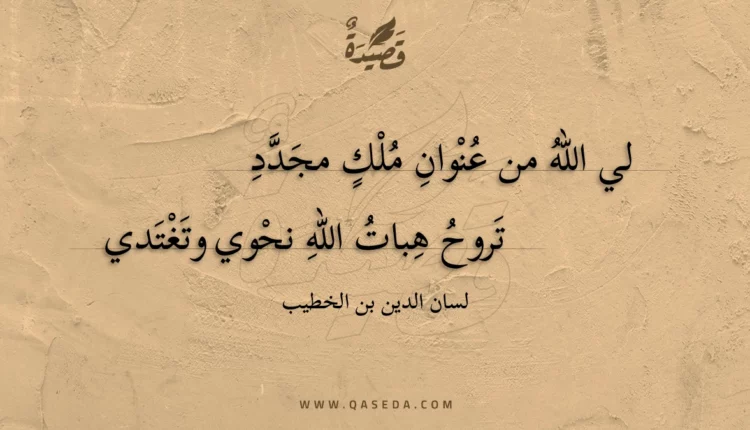 قَصِيدَةٌ
لي اللهُ من عُنْوانِ مُلْكٍ مجَدَّدِ
تَروحُ هِباتُ اللهِ نحْوي وتَغْتَدي
لسان الدين بن الخطيب
WWW.QASEDA.COM